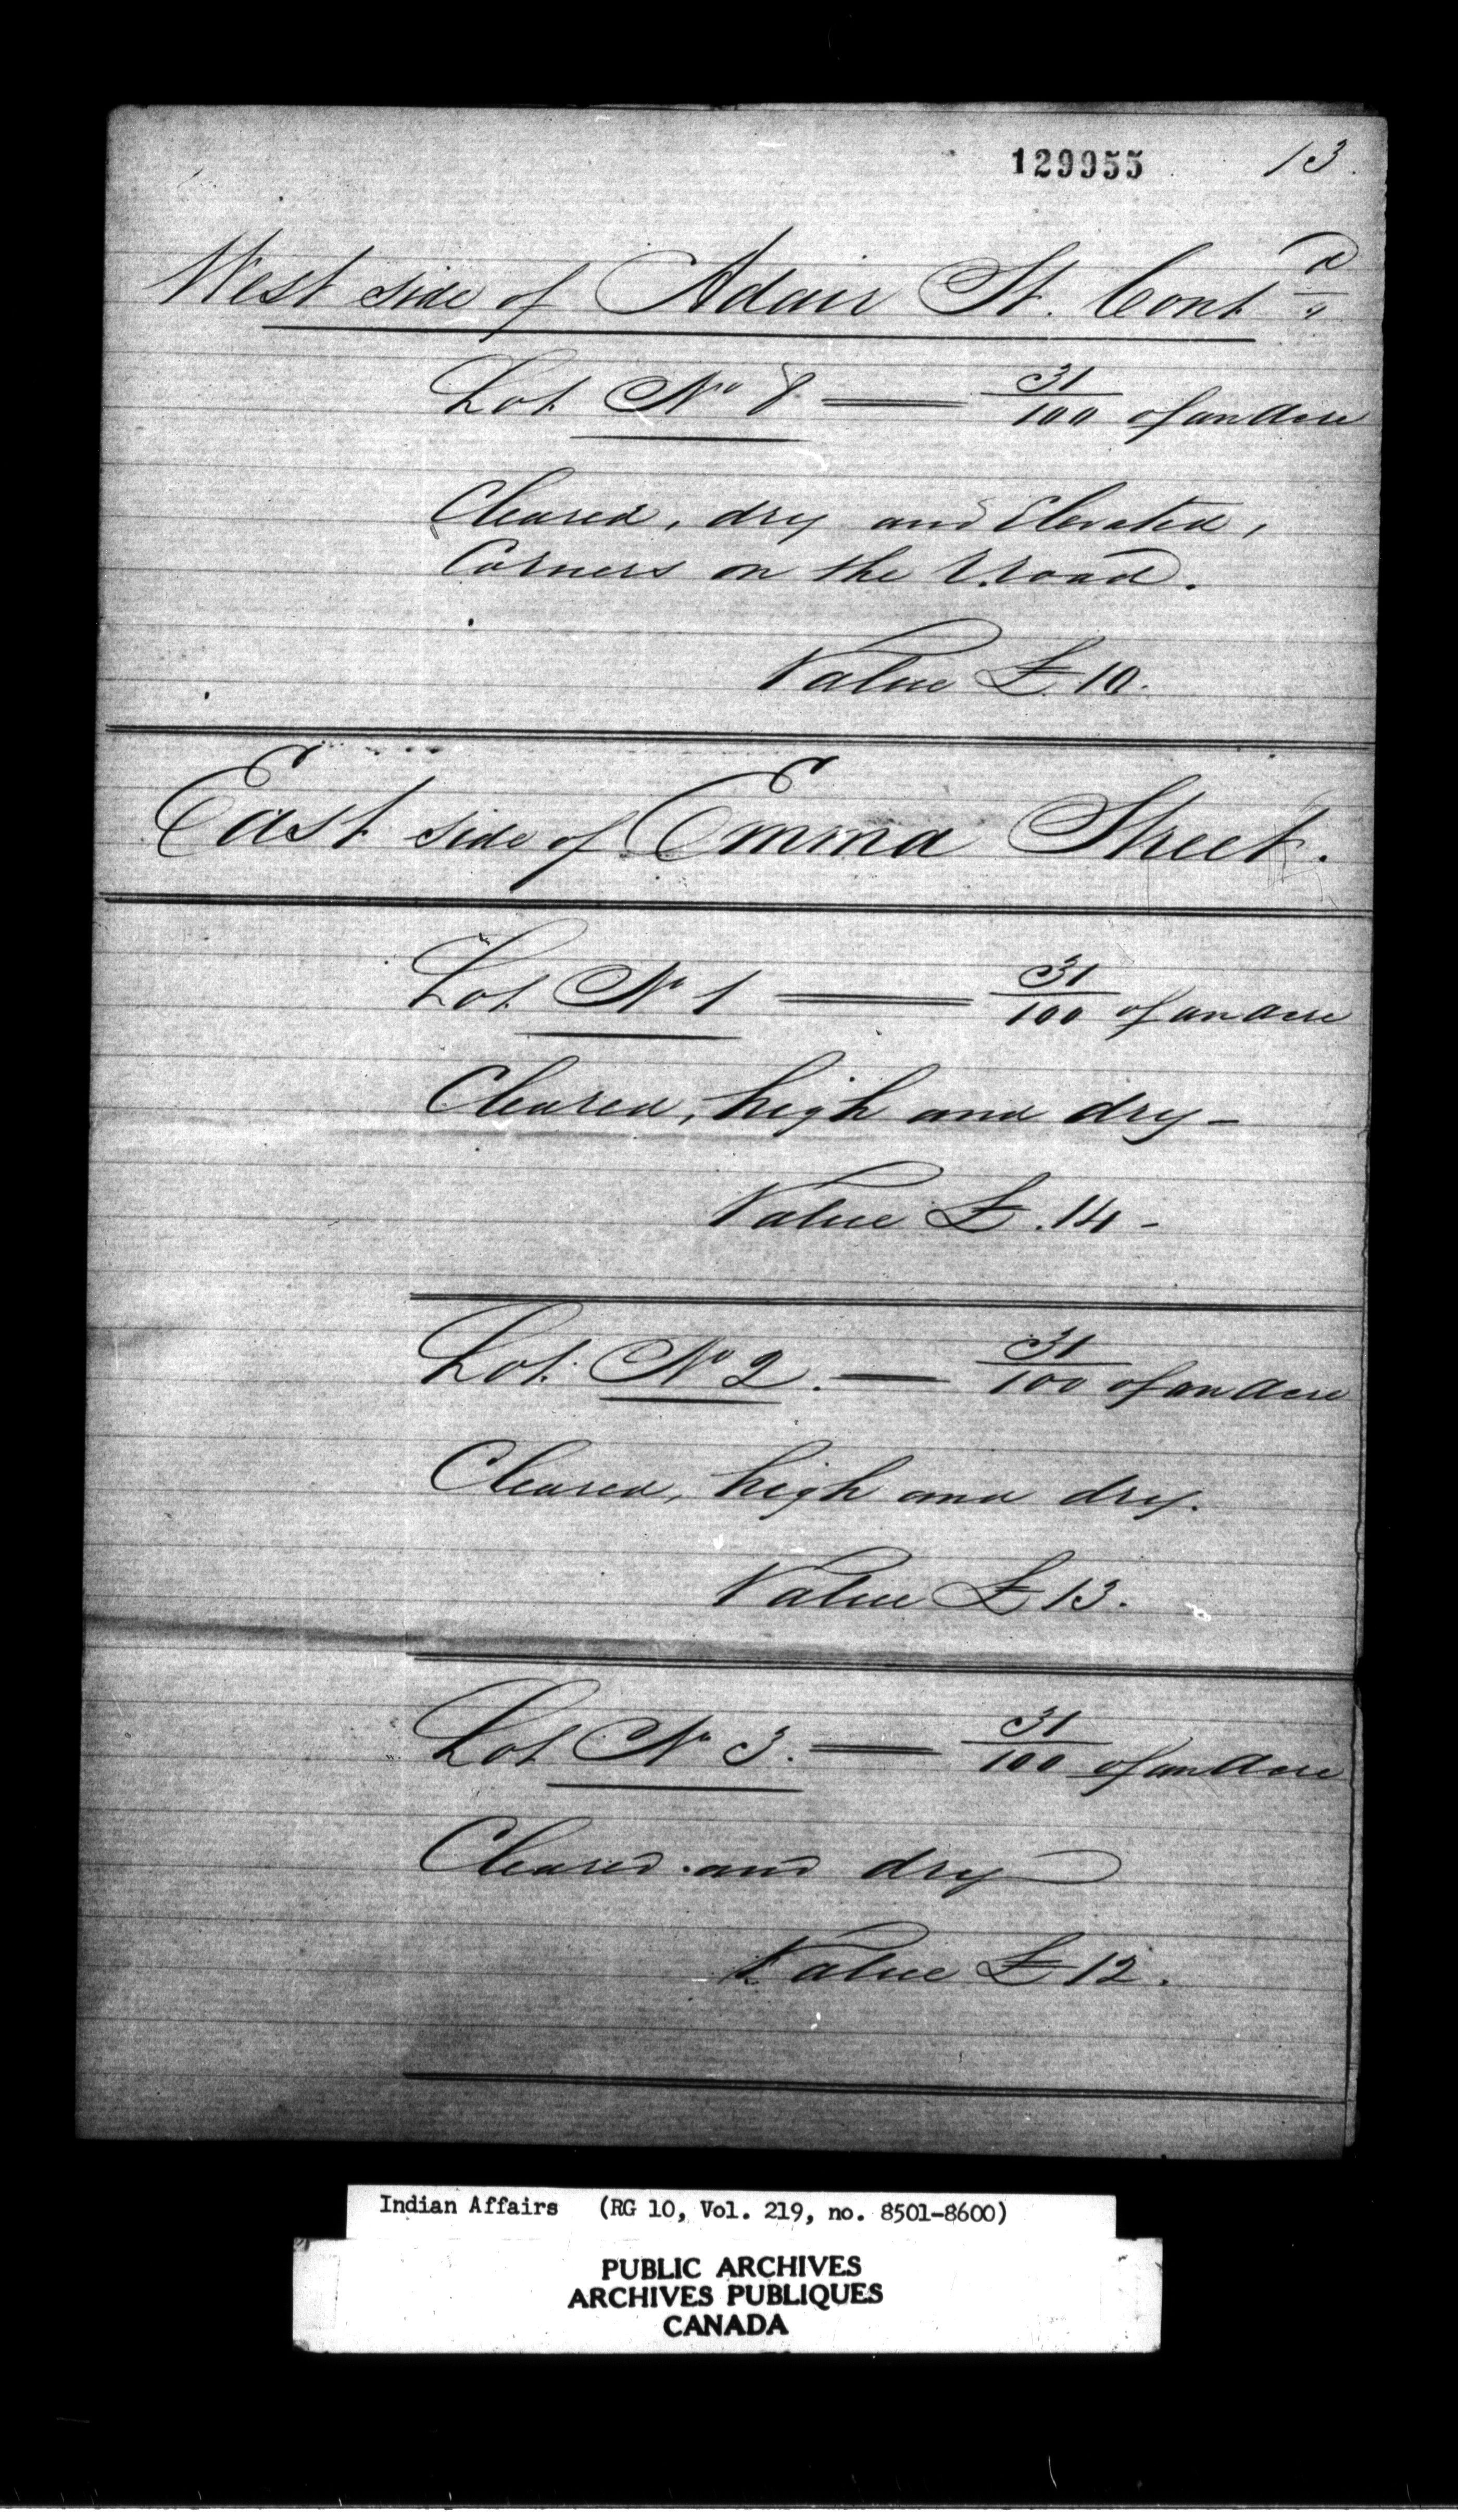 129955 13.
West side of Adair St. Cont d
Lot No 8 — 31/100 of an Acre
Cleared, dry and Elevated,
Corners on the road.
Value £ 10.
East side of Emma Street.
Lot No 1 — 31/100 of an Acre
Cleared, high and dry –
Value £ .14 –
Lot. No 2. — 31/100 of an Acre
Cleared, high and dry.
Value £ 13.
Lot No 3. — 31/100 of an Acre
Cleared and dry
Value £ 12.
Indian Affairs (RG 10, Vol. 219, no. 8501-8600)
PUBLIC ARCHIVES
ARCHIVES PUBLIQUES
CANADA